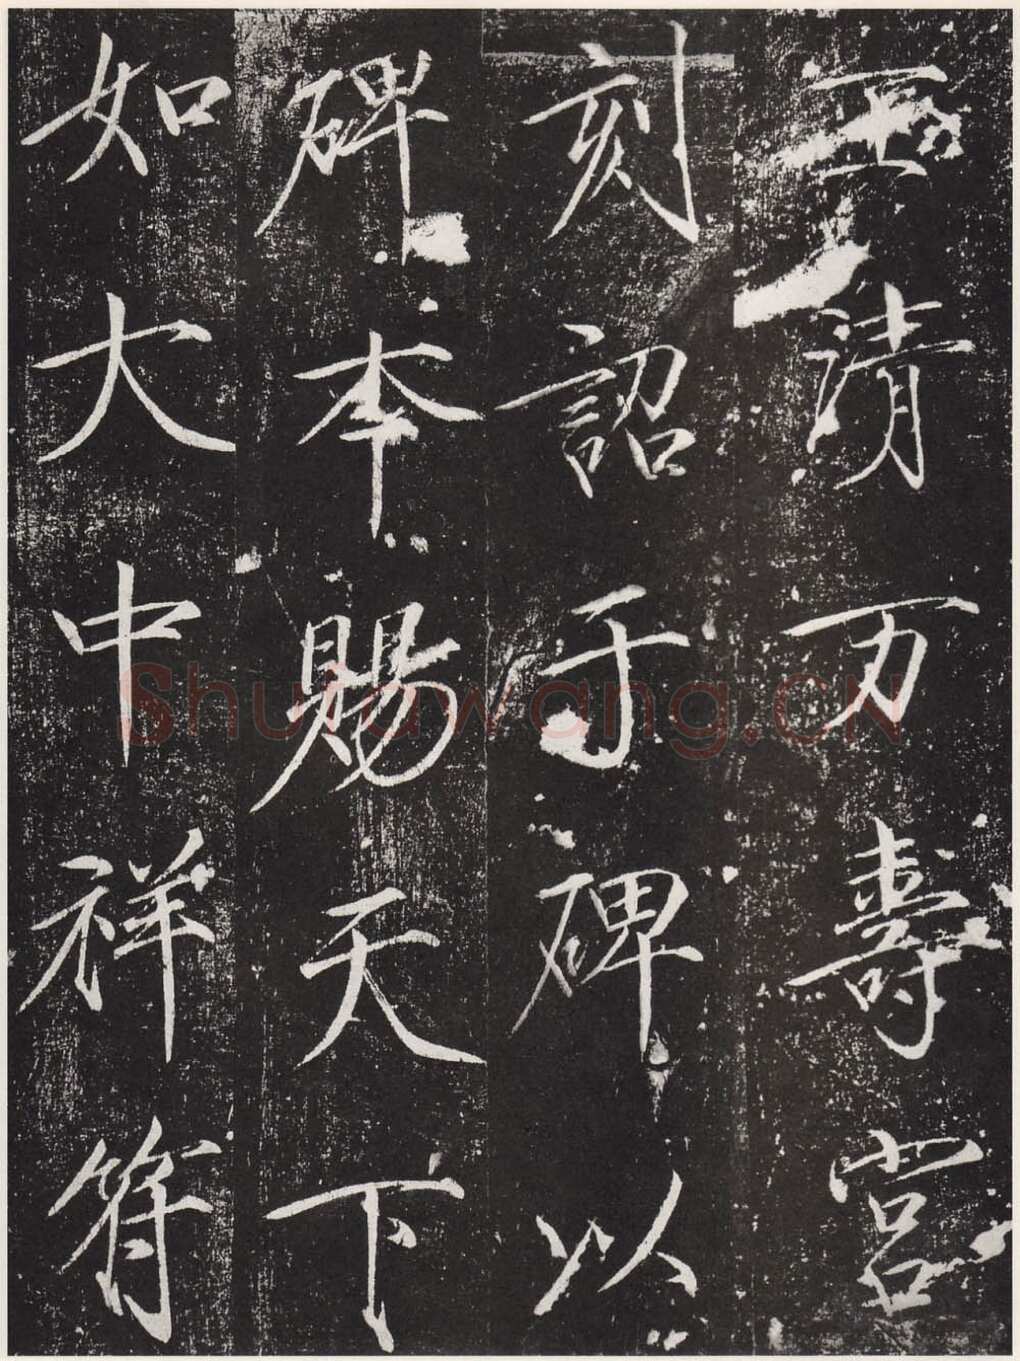 玉清万壽宮
刻詔于碑以
碑本賜天下
如大中祥符
Shufawang.CN